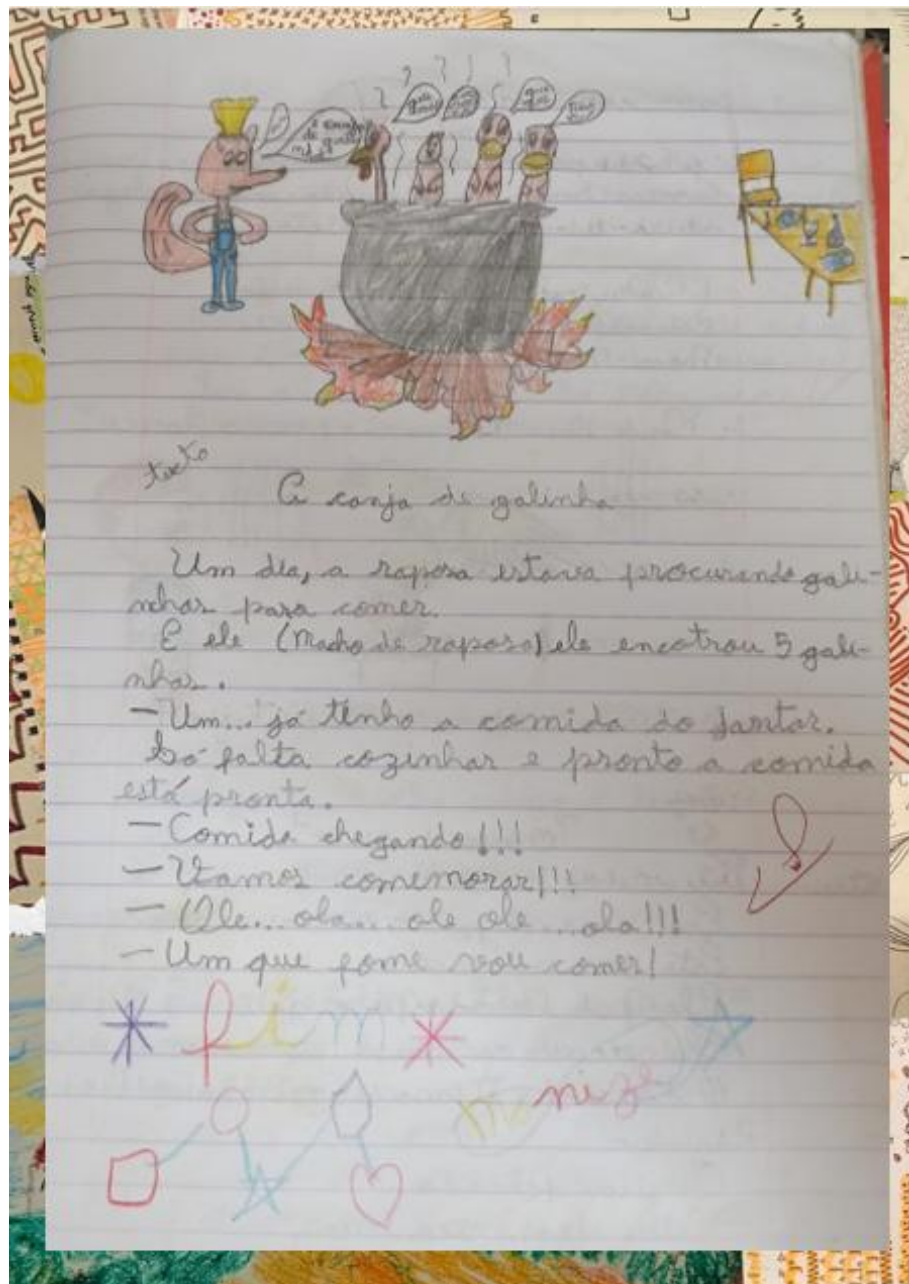 texto
A canja de galinha
Um dia, a raposa estava procurando gali-
nhas para comer.
E ele (macho de raposa) ele encotrou 5 gali-
nhas.
— Um... já tenho a comida do jantar.
Só falta cozinhar e pronto a comida
está pronta.
— Comida chegando!!!
— Vamos comemorar!!!
— Ole... ola... ole ole... ola!!!
— Um que fome vou comer!
fim